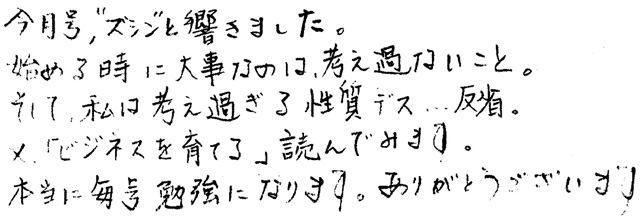 今月号、"ズシン"と響きました。
始める時に大事なのは、考え過ないこと。
そして、私は考え過ぎる性質デス…反省。
×「ビジネスを育てる」読んでみます。
本当に毎号勉強になります。ありがとうございます